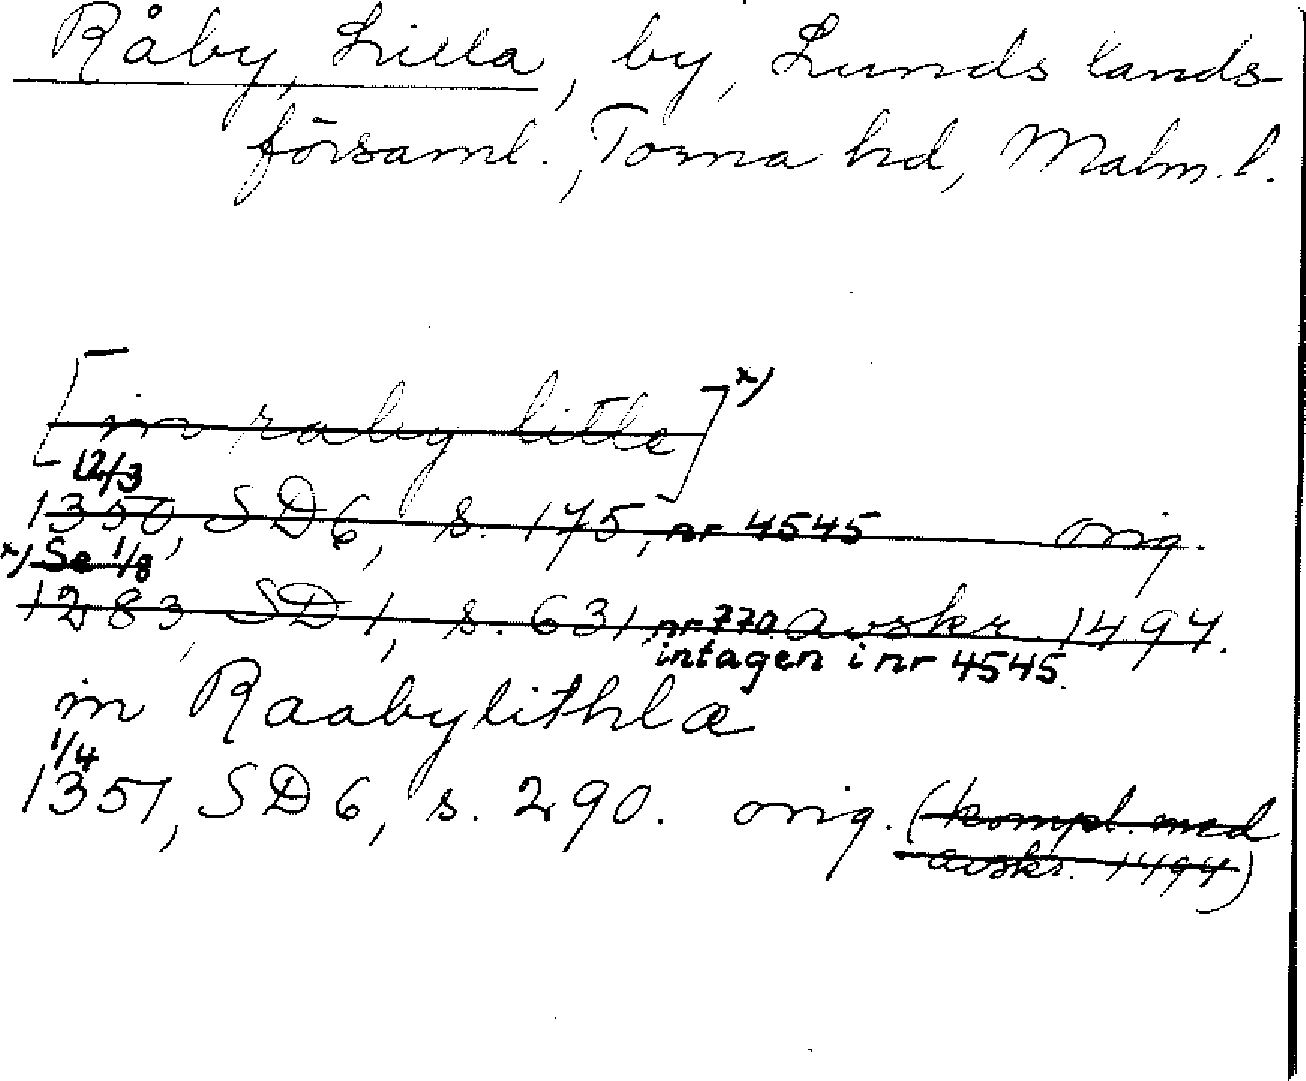 Råby, Lilla, by, Lunds lands-
församl., Torna hd, Malm. l.
[in raby litle] x)
12/3
1350, SD 6, s. 175, nr 4545 orig.
x) Se 1/8
1283, SD 1, s. 631, nr 770 avskr. 1494.
intagen i nr 4545.
in Raabylithlæ
1/4
1351, SD 6, s. 290. orig. (kompl. med
avskr. 1494)